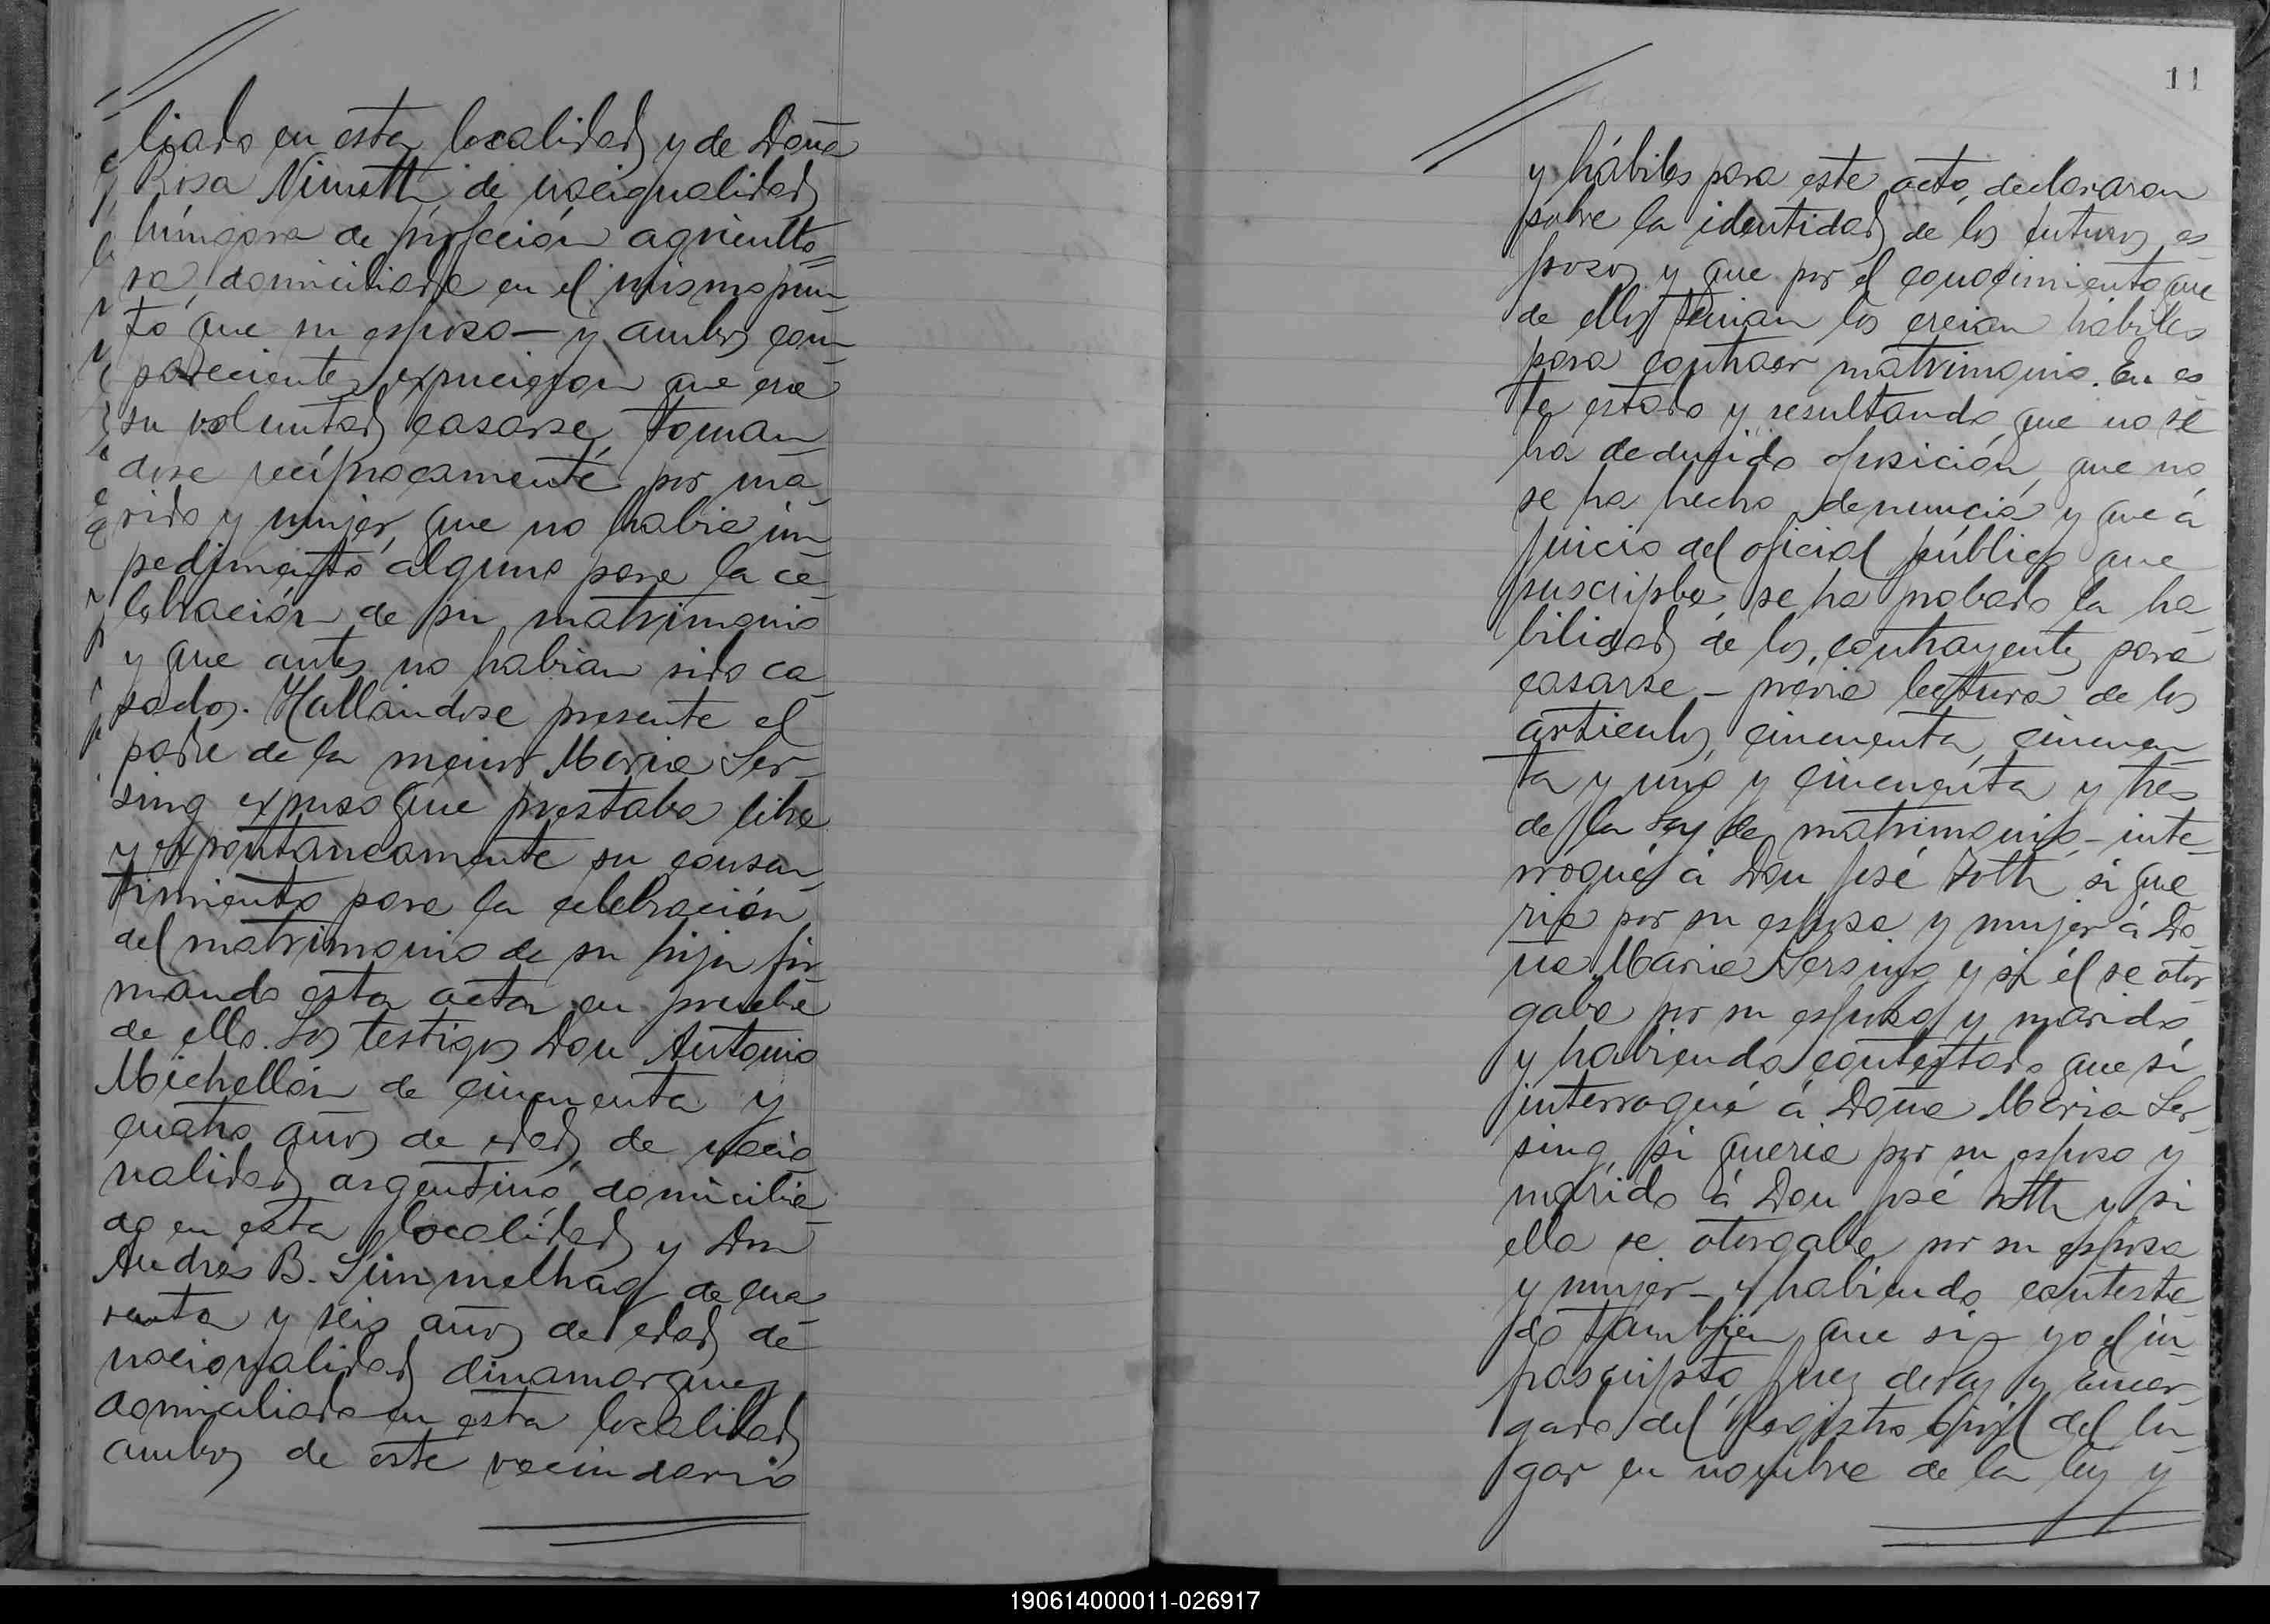 liado en esta localidad y de Doña
Rosa Nimeth de nacionalidad
húngara de profeción agriculto=
ra, domiciliada en el mismo pun-
to que su esposo — y ambos com-
parecientes expucieron que era
su voluntad casarse, toman
dose recíprocamente por ma-
rido y mujer, que no habia im
pedimento alguno para la ce-
lebración de su matrimonio
y que antes no habian sido ca-
sados. Hallándose presente el
padre de la menor Maria Ser-
sing expuso que prestaba libre
y expontaneamente su consen
timiento para la celebración
del matrimonio de su hija fir
mando esta acta en prueba
de ello. Los testigos Don Antonio
Michellón de cincuenta y
cuatro años de edad, de nacio
nalidad argentino, domicilia-
do en esta localidad y Don
Andrés B. de cua
renta y seis años de edad de
nacionalidad dinamarques
domiciliado en esta localidad
ambos de este vecindario
11
y hábiles para este acto, declararon
sobre la identidad de los futuros es-
posos y que por el conocimiento que
de ellos tenian los creian hábiles
para contraer matrimonio. En es
te estado y resultando que no se
ha deducido oposición, que no
se ha hecho denuncia y que á
juicio del oficial público que
suscribe, se ha probado la ha-
bilidad de los contrayentes para
casarse – previa lectura de los
artículos, cincuenta, cincuen-
ta y uno y cincuenta y tres
de la Ley de matrimonio – inte-
rrogué á Don José Toth, si que
ria por su esposa y mujer á Do-
ña Maria Sersing y si él se otor
gaba por su esposo y marido
y habiendo contestado que sí
interrogué á Doña Maria Ser-
sing, si queria por su esposo y
marido á Don José Toth y si
ella se otorgaba por su esposa
y mujer – y habiendo contesta-
do tambien que si – yo el in-
frascripto, Juez de Paz y Encar-
gado del Registro Civil del lu-
gar en nombre de la ley y
190614000011-026917